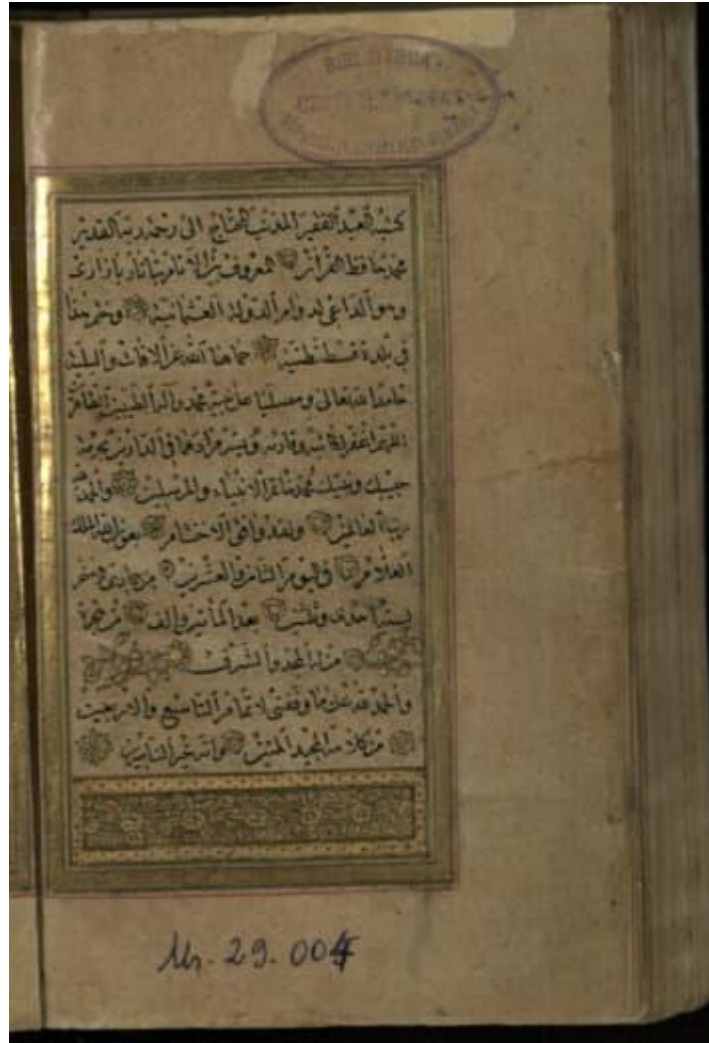 BIBLIOTECA
كتبه العبد الفقير المذنب المحتاج الى رحمة ربه القدير
محمد حافظ القرآن المعروف بين الانام بتاتار بازارى
وهو الداعى لدوام الدولة العثمانية وحرر هذا
فى بلدة قسطنطنيه حماها الله عن الافات والبلية
حامدا لله تعالى ومصليا على نبيه محمد وآله الطيبين الطاهرين
اللهم اغفر لكاتبه وقارئه ويسر مرادهما فى الدارين بحرمة
حبيبك ونبيك محمد خاتم الانبياء والمرسلين والحمد لله
رب العالمين ولقد وافق الاختتام بعون الله الملك
العلام فى اليوم الثامن والعشرين من جمادى
لسنة احدى وثلثين بعد المأتين والف من هجرة
من له المجد والشرف
والحمد لله على ما وفقنى لاتمام التاسع والاربعين
من كلامه المجيد المبين وانه خير الناصرين
29.004